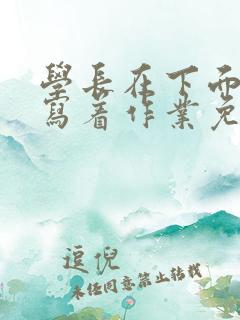 學長在下面
寫着作業免
逗倪
未经同意禁止转载